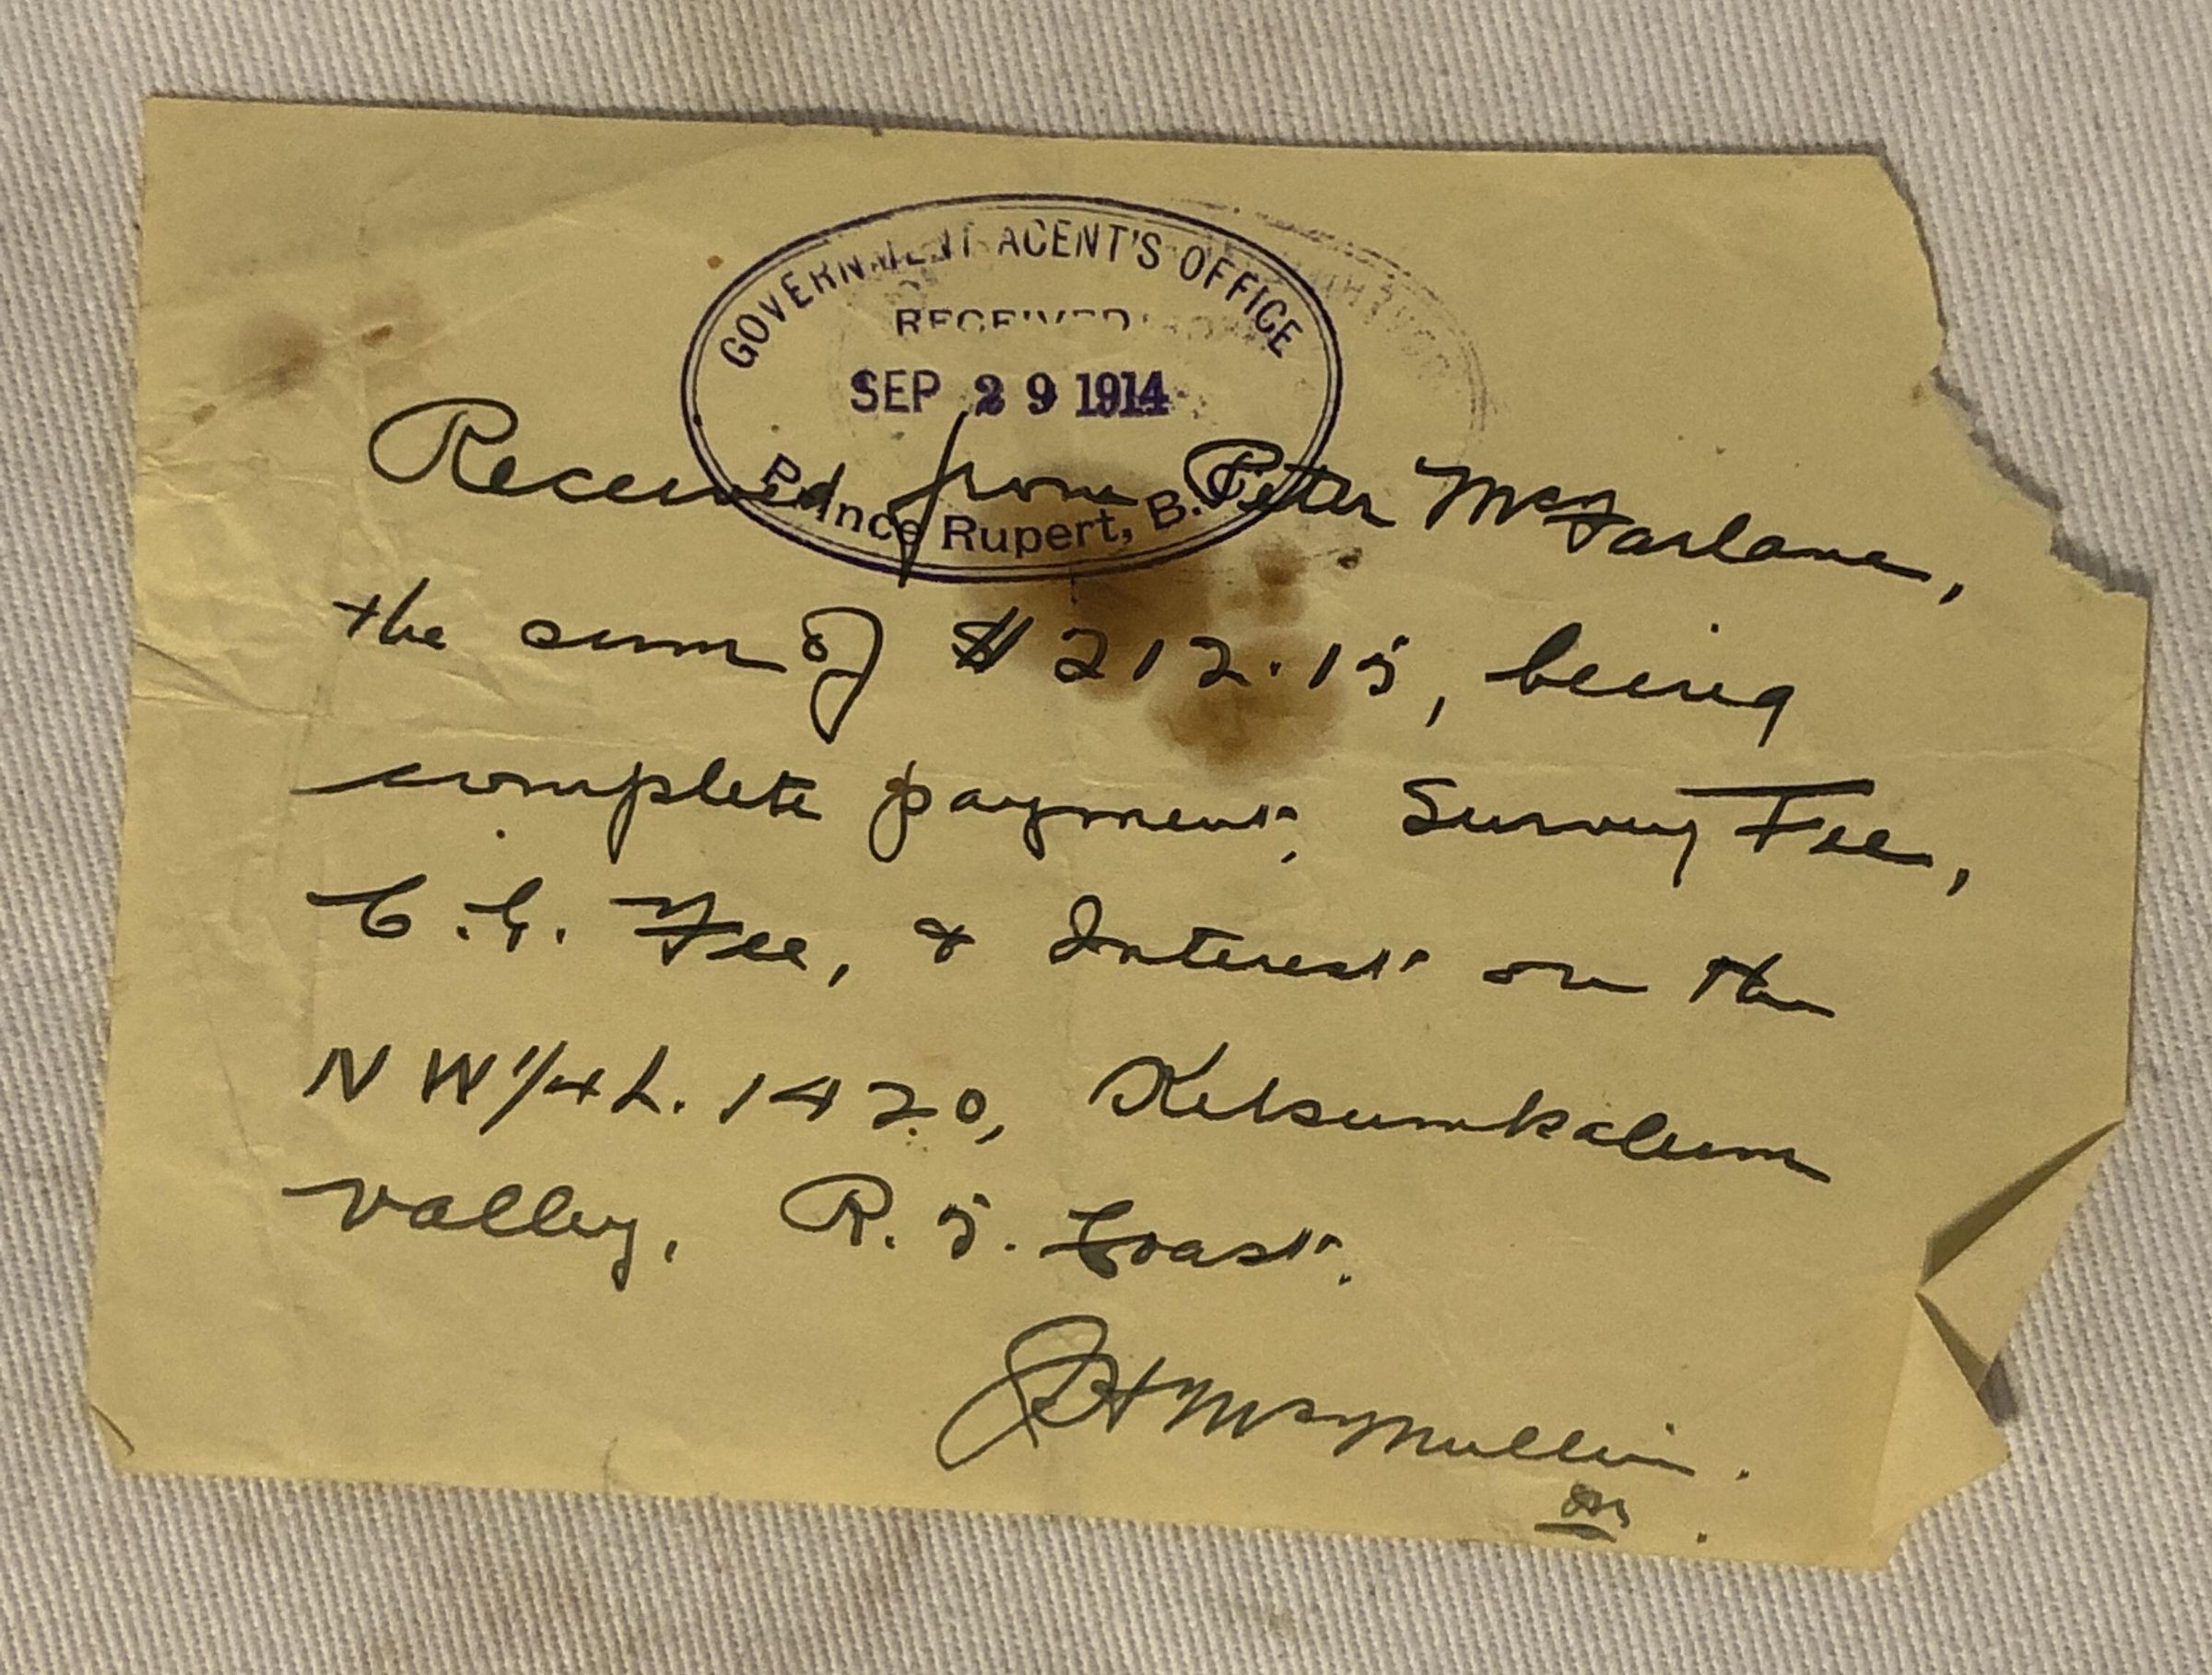 GOVERNMENT AGENT'S OFFICE
RECEIVED
SEP 29 1914
Prince Rupert, B.C.
Received from Peter McFarlane,
the sum of $212.15, being
complete payment, Survey Fee,
C.G. Fee, & Interest on the
NW 1/4 L. 1420, Kitsumkalum
valley, R. 5. Coast.
JH McMullin.